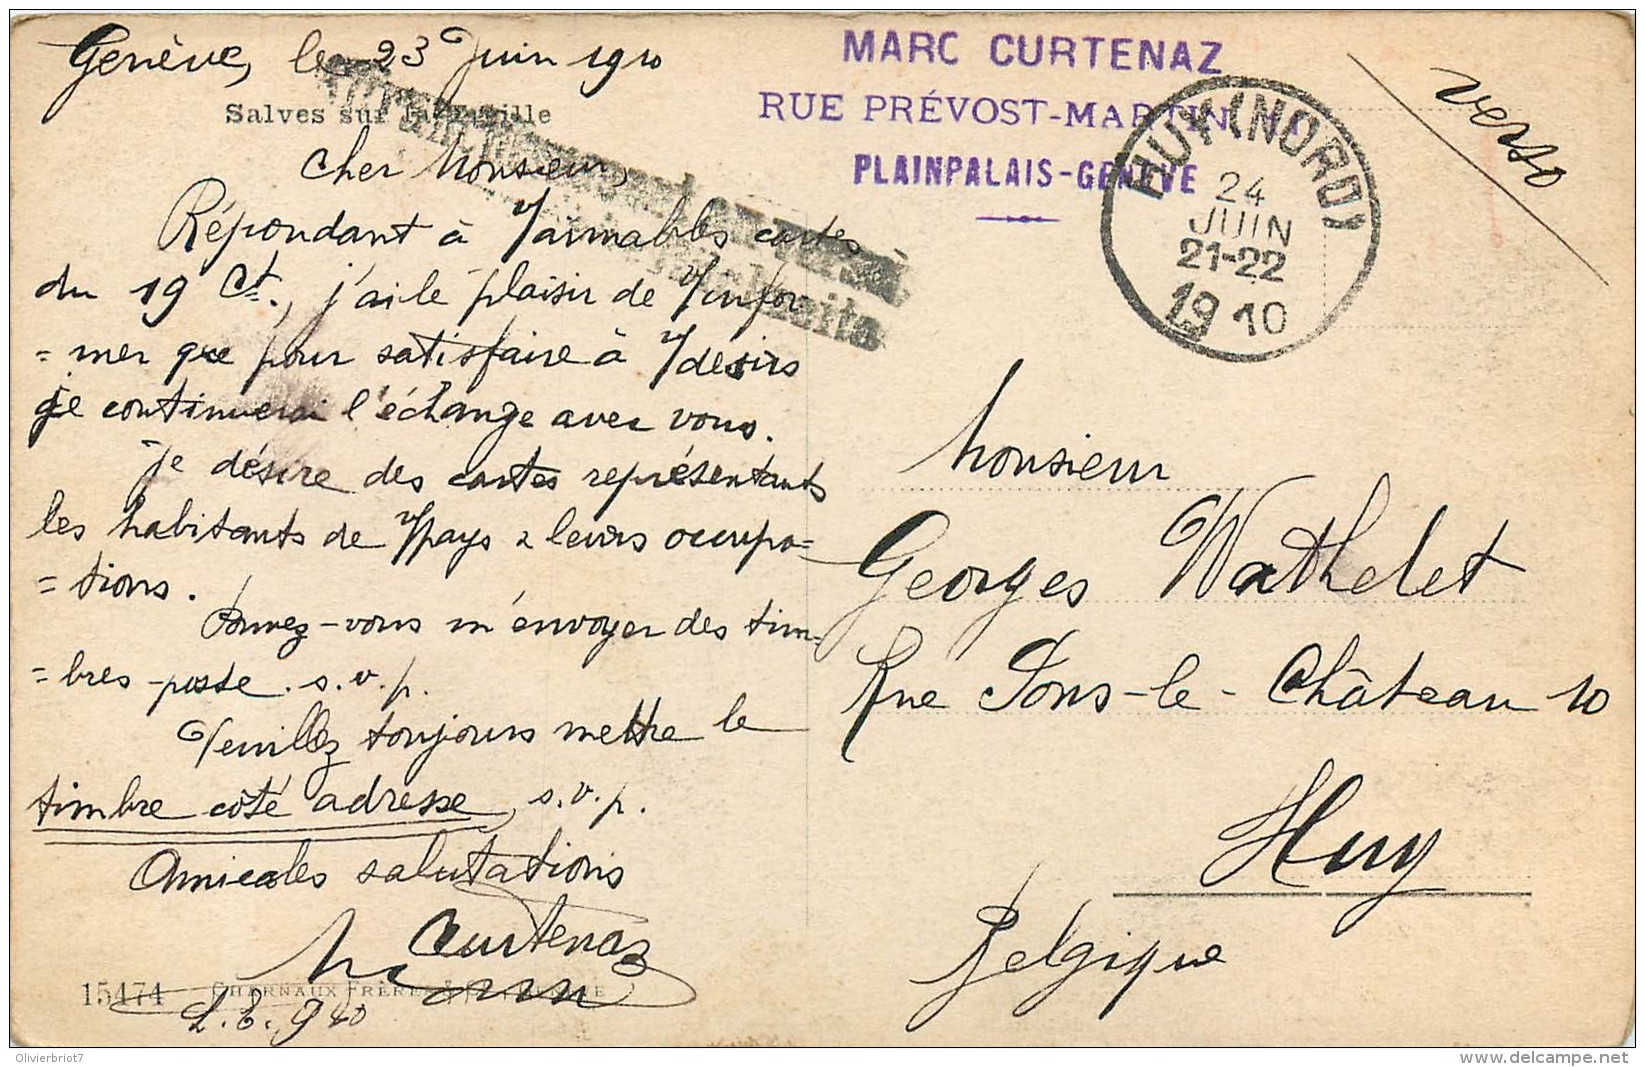 Genève, le 23 Juin 1910
Salves sur la
Cher Monsieur,
Répondant à V/aimables cartes
du 19 Ct., j'ai le plaisir de V/infor-
=mer que pour satisfaire à V/désirs
je continuerai l'échange avec vous.
Je désire des cartes représentants
les habitants de V/pays & leurs occupa=
=tions.
Pouvez-vous m'envoyer des tim-
=bres-poste. s.v.p.
Veuillez toujours mettre le
timbre côté adresse, s.v.p.
Amicales salutations
Curtenaz
15474 CHARNAUX FRÈRES
MARC CURTENAZ
RUE PRÉVOST-MARTIN
PLAINPALAIS-GENÈVE
HUY (NORD)
24
JUIN
21-22
1910
verso
Monsieur
Georges Wathelet
Rue Sous-le-Château 10
Huy
Belgique
Olivierbriot7
www.delcampe.net